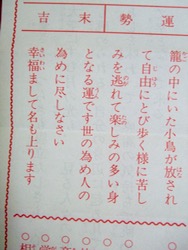 運勢 末吉
籠の中にいた小鳥が放され
て自由にとび歩く様に苦し
みを逃れて楽しみの多い身
となる運です世の為め人の
為めに尽しなさい
幸福まして名も上ります